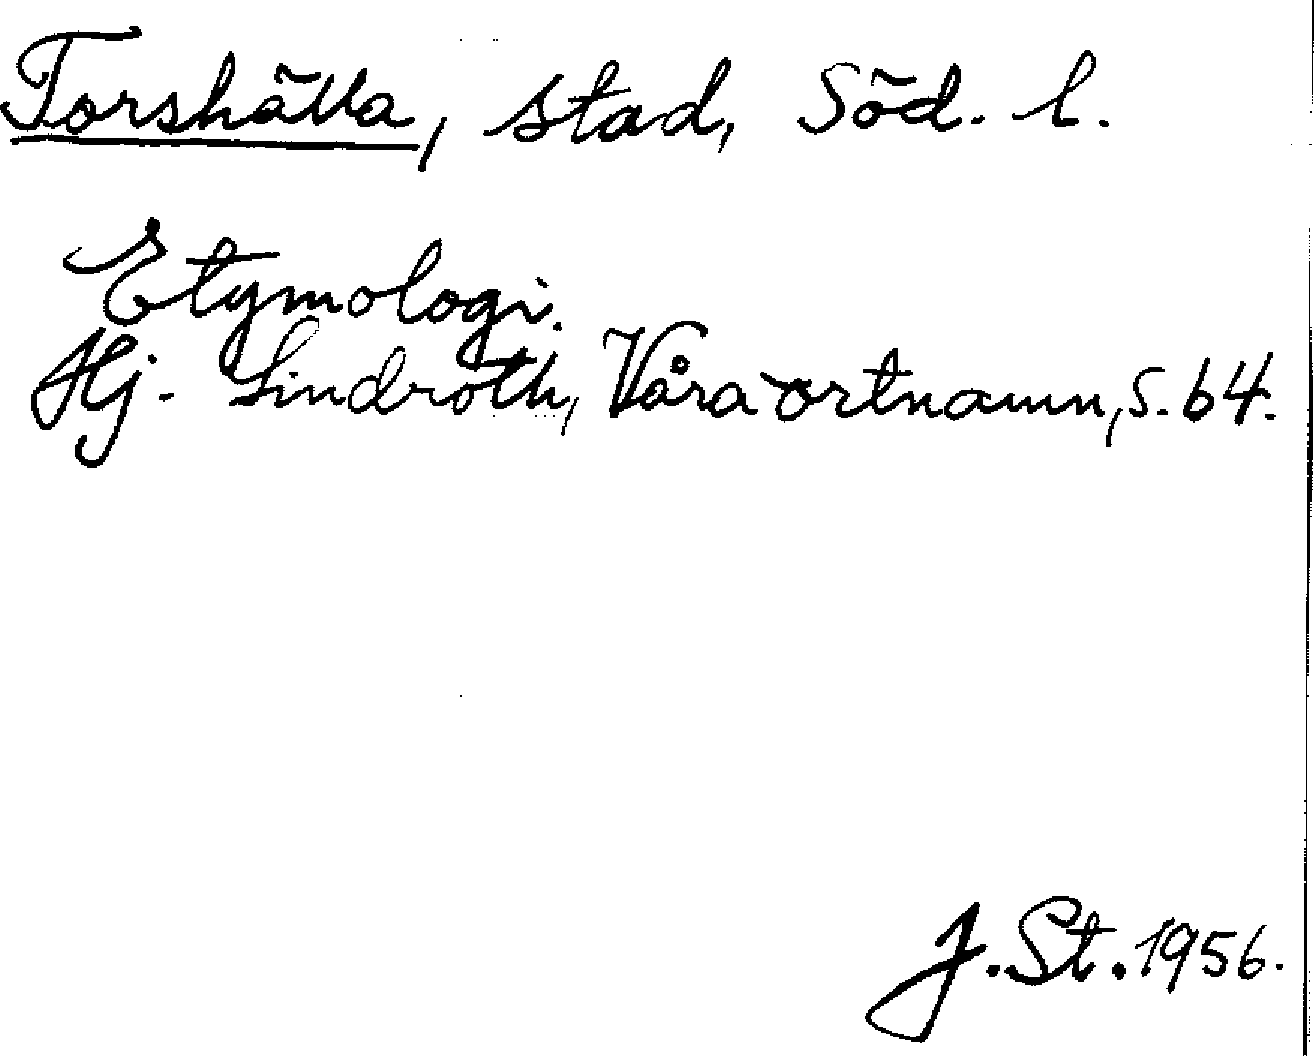 Torshälla, stad, Söd. l.
Etymologi.
Hj. Lindroth, Våra ortnamn, s. 64.
J. St. 1956.